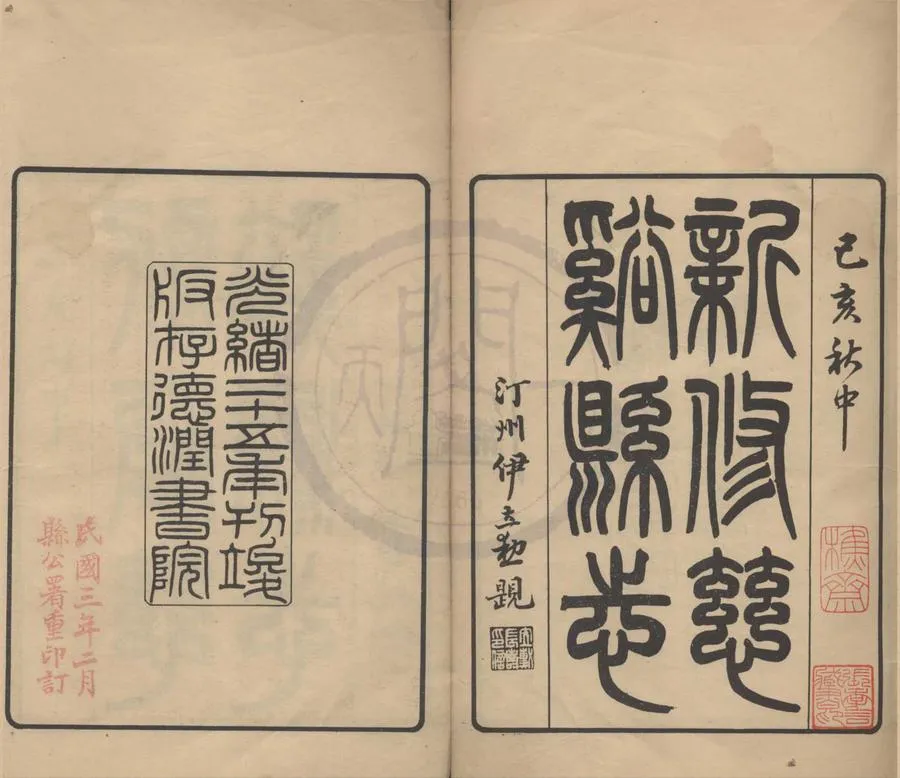 己亥秋中
新修慈
谿縣志
汀州伊立勳題
光緒二十五年刊竣
版存德潤書院
民國三年二月
縣公署重印訂